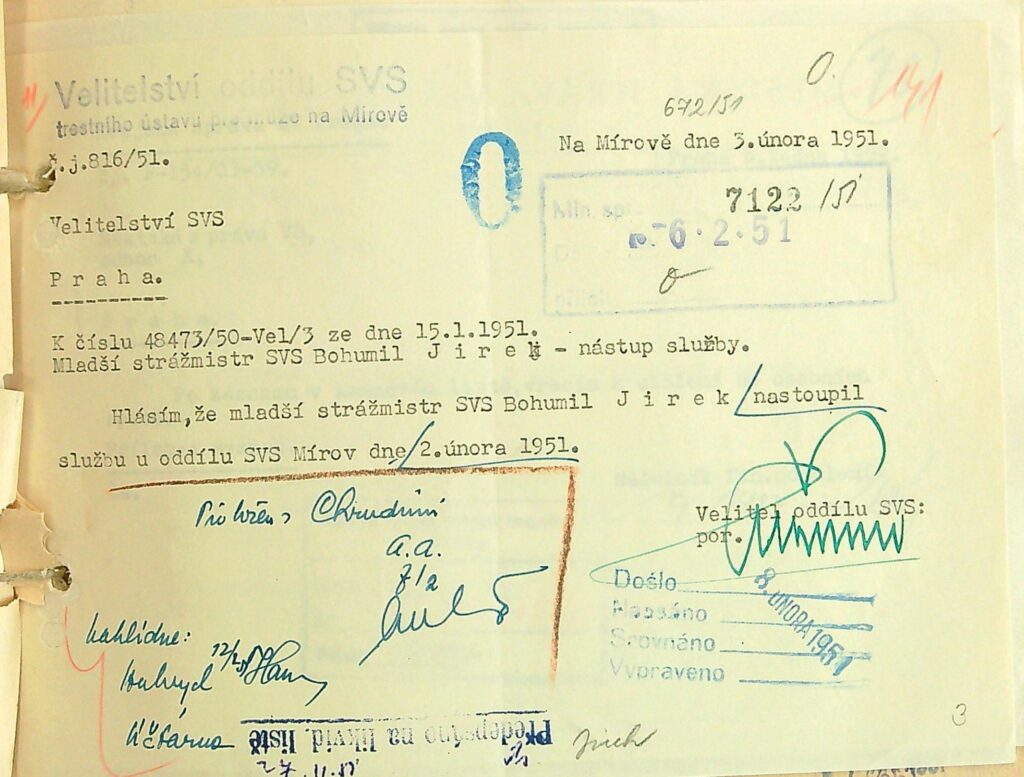 O.
741
Velitelství oddílu SVS
trestního ústavu pro muže na Mírově
672/51
č.j.816/51.
Na Mírově dne 3.února 1951.
0
7122 /51
Min. spr.
-6·2·51
Velitelství SVS
P r a h a.
K číslu 48473/50-Vel/3 ze dne 15.1.1951.
Mladší strážmistr SVS Bohumil J i r e k - nástup služby.
Hlásím,že mladší strážmistr SVS Bohumil J i r e k nastoupil
službu u oddílu SVS Mírov dne 2.února 1951.
Velitel oddílu SVS:
por.
Chrudimi
a.a.
7/2
Došlo
Napsáno
Srovnáno
Vypraveno
8. ÚNORA 1951
nahlédne:
Účtárna
Předepsáno na likvid. listě
3